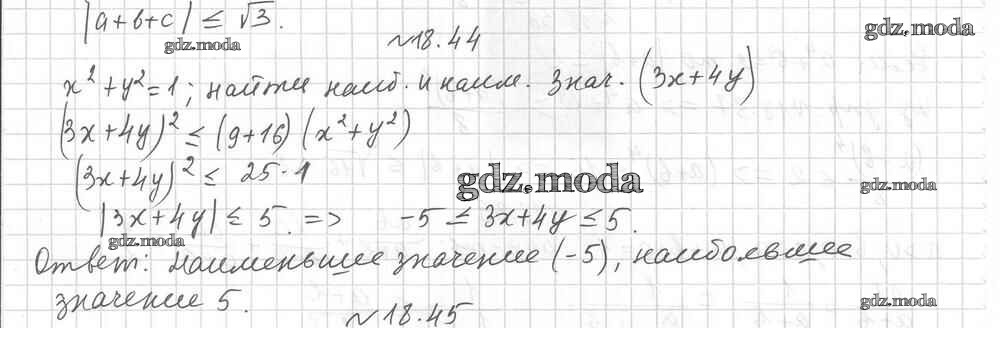 |a+b+c| ≤ √3.
gdz.moda
gdz.moda
№18.44
x²+y²=1; найти наиб. и наим. знач. (3x+4y)
(3x+4y)² ≤ (9+16)(x²+y²)
gdz.moda
(3x+4y)² ≤ 25·1
gdz.moda
gdz.moda
|3x+4y| ≤ 5. => -5 ≤ 3x+4y ≤ 5.
gdz.moda
Ответ: наименьшее значение (-5), наибольшее
значение 5.
gdz.moda
№18.45
gdz.moda